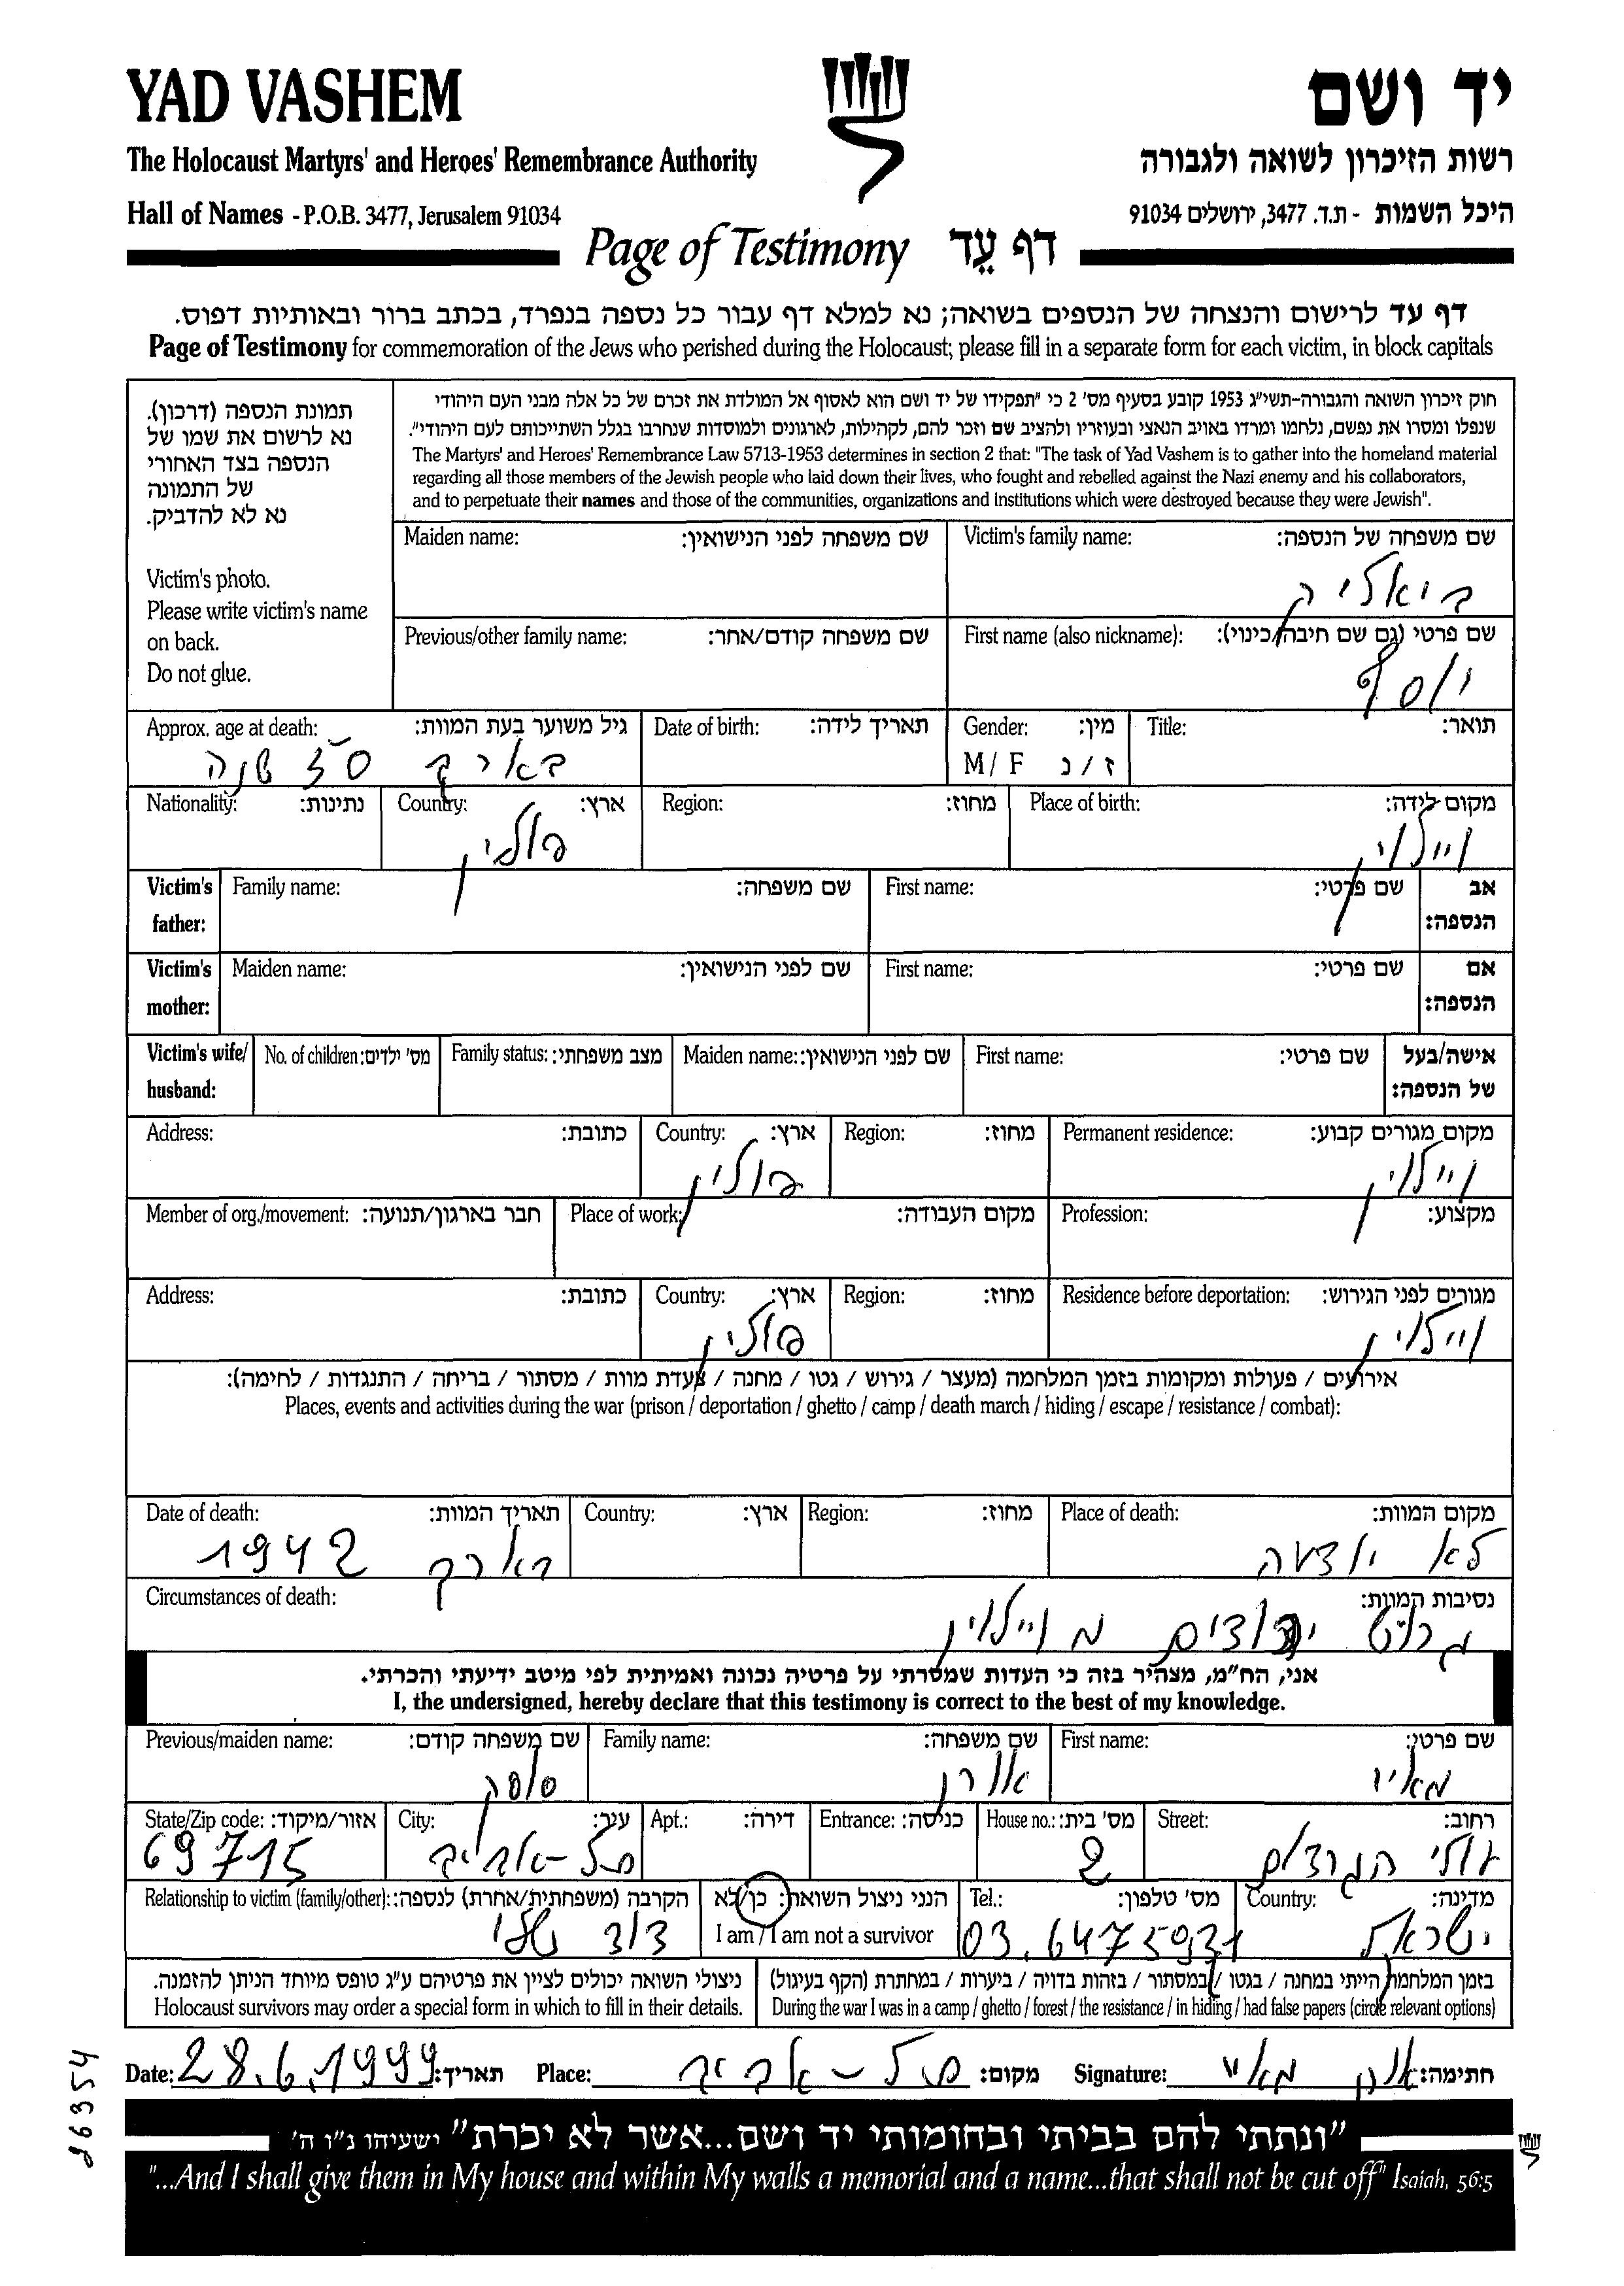 YAD VASHEM
יד ושם
The Holocaust Martyrs' and Heroes' Remembrance Authority
רשות הזיכרון לשואה ולגבורה
Hall of Names - P.O.B. 3477, Jerusalem 91034
היכל השמות - ת.ד. 3477, ירושלים 91034
Page of Testimony דף עֵד
דף עד לרישום והנצחה של הנספים בשואה; נא למלא דף עבור כל נספה בנפרד, בכתב ברור ובאותיות דפוס.
Page of Testimony for commemoration of the Jews who perished during the Holocaust; please fill in a separate form for each victim, in block capitals
תמונת הנספה (דרכון).
נא לרשום את שמו של
הנספה בצד האחורי
של התמונה
נא לא להדביק.
Victim's photo.
Please write victim's name
on back.
Do not glue.
חוק זיכרון השואה והגבורה-תשי"ג 1953 קובע בסעיף מס' 2 כי "תפקידו של יד ושם הוא לאסוף אל המולדת את זכרם של כל אלה מבני העם היהודי
שנפלו ומסרו את נפשם, נלחמו ומרדו באויב הנאצי ובעוזריו ולהציב שם וזכר להם, לקהילות, לארגונים ולמוסדות שנחרבו בגלל השתייכותם לעם היהודי".
The Martyrs' and Heroes' Remembrance Law 5713-1953 determines in section 2 that: "The task of Yad Vashem is to gather into the homeland material
regarding all those members of the Jewish people who laid down their lives, who fought and rebelled against the Nazi enemy and his collaborators,
and to perpetuate their names and those of the communities, organizations and institutions which were destroyed because they were Jewish".
Victim's family name: שם משפחה של הנספה:
ביאליק
Maiden name: שם משפחה לפני הנישואין:
First name (also nickname): שם פרטי (גם שם חיבה/כינוי):
יוסף
Previous/other family name: שם משפחה קודם/אחר:
Title: תואר:
Gender: מין:
M/ F ז / נ
Date of birth: תאריך לידה:
Approx. age at death: גיל משוער בעת המוות:
בערך 30 שנה
Place of birth: מקום לידה:
ויילוין
Region: מחוז:
Country: ארץ:
פולין
Nationality: נתינות:
Victim's father: אב הנספה:
First name: שם פרטי:
Family name: שם משפחה:
Victim's mother: אם הנספה:
First name: שם פרטי:
Maiden name: שם לפני הנישואין:
Victim's wife/ husband: אישה/בעל של הנספה:
First name: שם פרטי:
Maiden name: שם לפני הנישואין:
Family status: מצב משפחתי:
No. of children: מס' ילדים:
Permanent residence: מקום מגורים קבוע:
ויילוין
Region: מחוז:
Country: ארץ:
פולין
Address: כתובת:
Profession: מקצוע:
Place of work: מקום העבודה:
Member of org./movement: חבר בארגון/תנועה:
Residence before deportation: מגורים לפני הגירוש:
ויילוין
Region: מחוז:
Country: ארץ:
פולין
Address: כתובת:
אירועים / פעולות ומקומות בזמן המלחמה (מעצר / גירוש / גטו / מחנה / צעדת מוות / מסתור / בריחה / התנגדות / לחימה):
Places, events and activities during the war (prison / deportation / ghetto / camp / death march / hiding / escape / resistance / combat):
Place of death: מקום המוות:
לא יודעה
Region: מחוז:
Country: ארץ:
Date of death: תאריך המוות:
1942
Circumstances of death: נסיבות המוות:
גרוש יהודים מ ויילוין
אני, הח"מ, מצהיר בזה כי העדות שמסרתי על פרטיה נכונה ואמיתית לפי מיטב ידיעתי והכרתי.
I, the undersigned, hereby declare that this testimony is correct to the best of my knowledge.
First name: שם פרטי:
Family name: שם משפחה:
אורן
Previous/maiden name: שם משפחה קודם:
Street: רחוב:
עולי הגרדום
House no.: מס' בית:
2
Entrance: כניסה:
Apt.: דירה:
City: עיר:
תל-אביב
State/Zip code: אזור/מיקוד:
69715
Country: מדינה:
ישראל
Tel.: מס' טלפון:
הנני ניצול השואה: כן/לא
I am / I am not a survivor
Relationship to victim (family/other): הקרבה (משפחתית/אחרת) לנספה:
דוד שלי
בזמן המלחמה הייתי במחנה / בגטו / במסתור / בזהות בדויה / ביערות / במחתרת (הקף בעיגול)
During the war I was in a camp / ghetto / forest / the resistance / in hiding / had false papers (circle relevant options)
ניצולי השואה יכולים לציין את פרטיהם ע"ג טופס מיוחד הניתן להזמנה.
Holocaust survivors may order a special form in which to fill in their details.
Date: 28.6.1999 תאריך:
Place: תל-אביב מקום:
Signature: חתימה:
"ונתתי להם בביתי ובחומותי יד ושם...אשר לא יכרת" ישעיהו נ"ו ה'
"...And I shall give them in My house and within My walls a memorial and a name...that shall not be cut off" Isaiah, 56:5